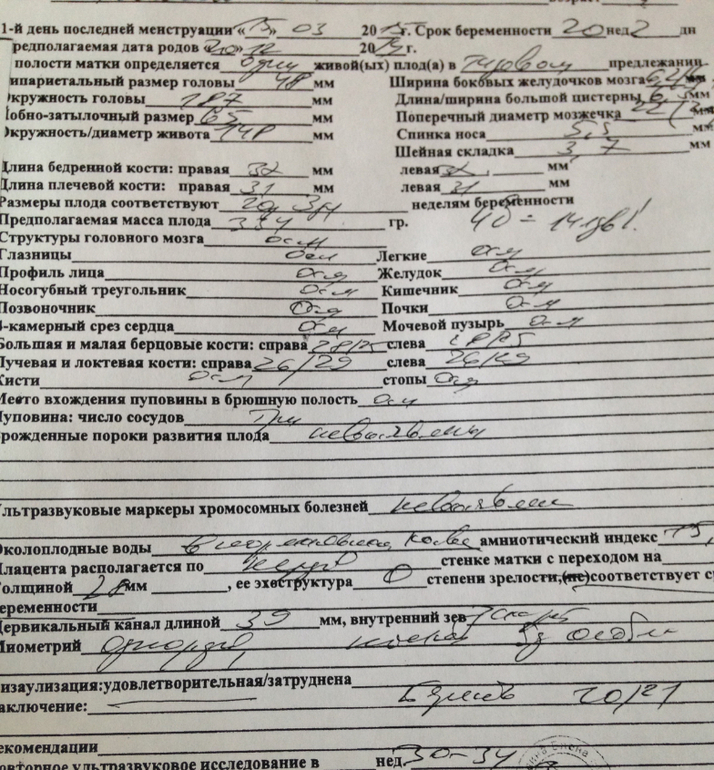 1-й день последней менструации « 15 » 03 20 15 г. Срок беременности 20 нед 2 дн
редполагаемая дата родов « 20 » 12 20 15 г.
полости матки определяется один живой(ых) плод(а) в тазовом предлежании
ипариетальный размер головы 48 мм Ширина боковых желудочков мозга мм
кружность головы 187 мм Длина/ширина большой цистерны мм
обно-затылочный размер 65 мм Поперечный диаметр мозжечка мм
Окружность/диаметр живота 148 мм Спинка носа 5,5 мм
Шейная складка 3,7 мм
Длина бедренной кости: правая 32 мм левая 32 мм
Длина плечевой кости: правая 31 мм левая 31 мм
Размеры плода соответствуют неделям беременности
Предполагаемая масса плода 334 гр.
Структуры головного мозга осм
Глазницы осм Легкие осм
Профиль лица осм Желудок осм
Носогубный треугольник осм Кишечник осм
Позвоночник осм Почки осм
4-камерный срез сердца осм Мочевой пузырь осм
Большая и малая берцовые кости: справа 28/25 слева 28/25
Лучевая и локтевая кости: справа 26/29 слева 26/29
Кисти осм стопы осм
Место вхождения пуповины в брюшную полость осм
Пуповина: число сосудов три
рожденные пороки развития плода не выявлены
льтразвуковые маркеры хромосомных болезней не выявлен
Околоплодные воды в нормальном колве амниотический индекс
Плацента располагается по стенке матки с переходом на
Толщиной 28 мм , ее эхоструктура 0 степени зрелости,(не)соответствует с
беременности
Цервикальный канал длиной 39 мм, внутренний зев
Миометрий
изаулизация:удовлетворительная/затруднена
аключение: 20/21
екомендации
овторное ультразвуковое исследование в нед. 30-34